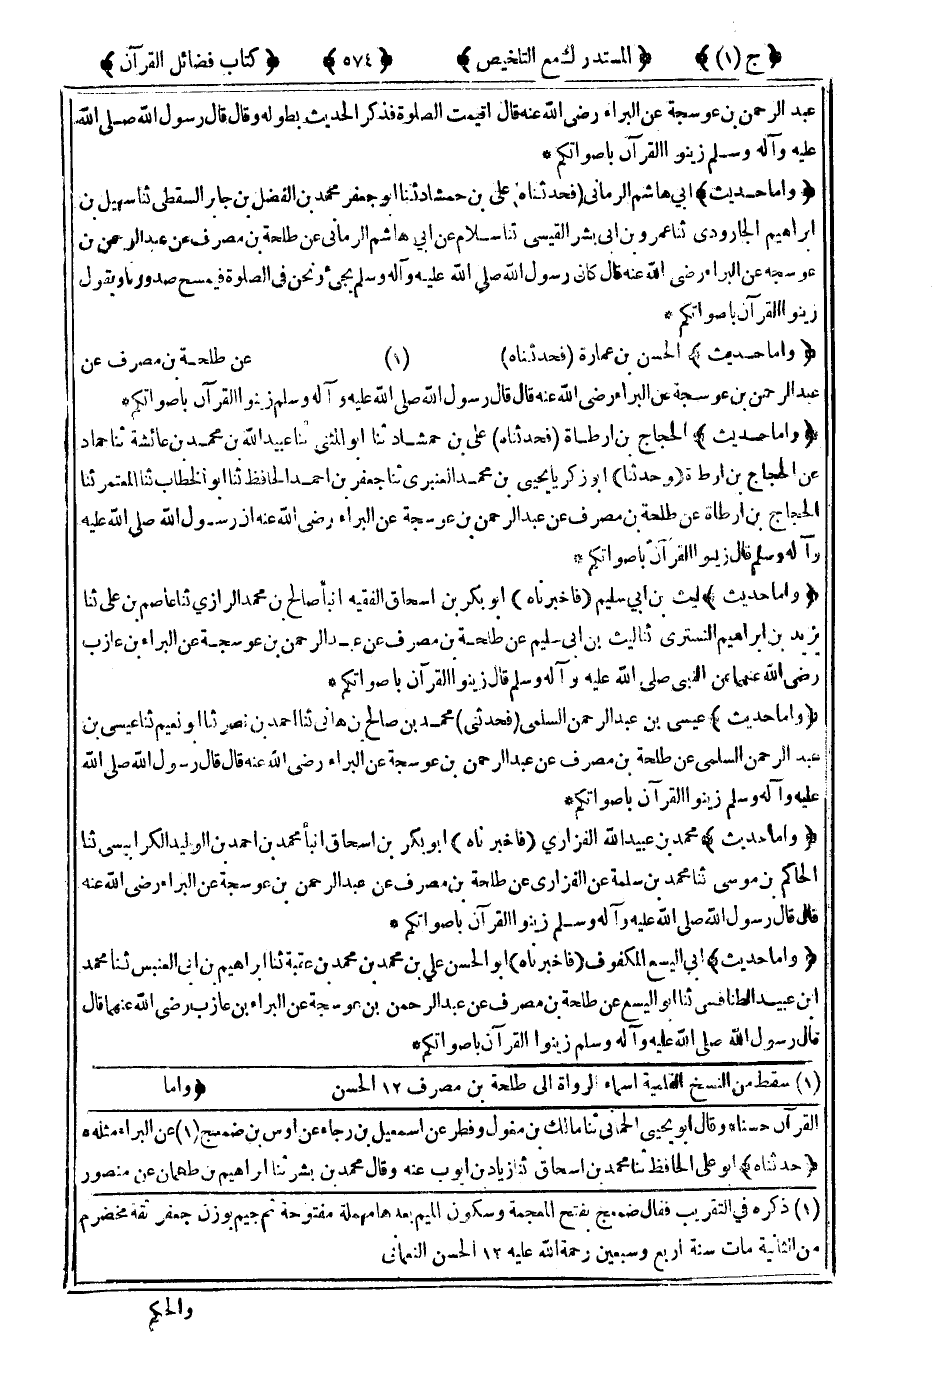 ﴿ ج (١) ﴾ ﴿ المستدرك مع التلخيص ﴾ ﴿ ٥٧٤ ﴾ ﴿ كتاب فضائل القرآن ﴾
عبد الرحمن بن عوسجة عن البراء رضى الله عنه قال اقيمت الصلوة فذكر الحديث بطوله وقال قال رسول الله صلى الله
عليه وآله وسلم زينوا القرآن باصواتكم *
﴿ واما حديث ﴾ ابي هاشم الرمانى (فحدثناه) على بن حمشاد ثنا ابو جعفر محمد بن الفضل بن جابر السقطى ثنا سهيل بن
ابراهيم الجارودى ثنا عمرو بن ابى بشر القيسى ثنا سلام عن ابي هاشم الرمانى عن طلحة بن مصرف عن عبد الرحمن بن
عوسجه عن البراء رضى الله عنه قال كان رسول الله صلى الله عليه وآله وسلم يجىء ونحن فى الصلوة فيمسح صدورنا ويقول
زينوا القرآن باصواتكم *
﴿ واما حديث ﴾ الحسن بن عمارة (فحدثناه) (١) عن طلحة بن مصرف عن
عبد الرحمن بن عوسجة عن البراء رضى الله عنه قال قال رسول الله صلى الله عليه وآله وسلم زينوا القرآن باصواتكم *
﴿ واما حديث ﴾ الحجاج بن ارطاة (فحدثناه) على بن حمشاد ثنا ابو المثنى ثنا عبيد الله بن محمد بن عائشة ثنا حماد
عن الحجاج بن ارطاة (وحدثنا) ابو زكريا يحيى بن محمد العنبرى ثنا جعفر بن احمد الحافظ ثنا ابو الخطاب ثنا المعتمر ثنا
الحجاج بن ارطاة عن طلحة بن مصرف عن عبد الرحمن بن عوسجة عن البراء رضى الله عنه ان رسول الله صلى الله عليه
وآله وسلم قال زينوا القرآن باصواتكم *
﴿ واما حديث ﴾ ليث بن ابي سليم (فاخبرناه) ابو بكر بن اسحاق الفقيه انبأ صالح بن محمد الرازي ثنا عاصم بن على ثنا
يزيد بن ابراهيم التسترى ثنا ليث بن ابى سليم عن طلحة بن مصرف عن عبد الرحمن بن عوسجة عن البراء بن عازب
رضى الله عنهما عن النبى صلى الله عليه وآله وسلم قال زينوا القرآن باصواتكم *
﴿ واما حديث ﴾ عيسى بن عبد الرحمن السلمى (فحدثنى) محمد بن صالح بن هانى ثنا احمد بن نصر ثنا ابو نعيم ثنا عيسى بن
عبد الرحمن السلمى عن طلحة بن مصرف عن عبد الرحمن بن عوسجة عن البراء رضى الله عنه قال قال رسول الله صلى الله
عليه وآله وسلم زينوا القرآن باصواتكم *
﴿ واما حديث ﴾ محمد بن عبيد الله الفزاري (فاخبرناه) ابو بكر بن اسحاق انبأ محمد بن احمد بن الوليد الكرابيسى ثنا
الحاكم بن موسى ثنا محمد بن سلمة عن الفزارى عن طلحة بن مصرف عن عبد الرحمن بن عوسجة عن البراء رضى الله عنه
قال قال رسول الله صلى الله عليه وآله وسلم زينوا القرآن باصواتكم *
﴿ واما حديث ﴾ ابي اليسع المكفوف (فاخبرناه) ابو الحسن علي بن محمد بن محمد بن عقبة ثنا ابراهيم بن ابى العنبس ثنا محمد
ابن عبيد الطنافسى ثنا ابو اليسع عن طلحة بن مصرف عن عبد الرحمن بن عوسجة عن البراء بن عازب رضى الله عنهما قال
قال رسول الله صلى الله عليه وآله وسلم زينوا القرآن باصواتكم *
(١) سقط من النسخ القلمية اسماء الرواة الى طلحة بن مصرف ١٢ الحسن ﴿ واما
القرآن حسناه وقال ابو يحيى الحمانى ثنا مالك بن مغول وفطر عن اسمعيل بن رجاء عن اوس بن ضمعج (١) عن البراء مثله ه
﴿ حدثناه ﴾ ابو على الحافظ ثنا محمد بن اسحاق ثنا زياد بن ايوب عنه وقال محمد بن بشر ثنا ابراهيم بن طهمان عن منصور
(١) ذكره في التقريب فقال ضمعج بفتح المعجمة وسكون الميم بعدها مهملة مفتوحة ثم جيم بوزن جعفر ثقة مخضرم
من الثانية مات سنة اربع وسبعين رحمة الله عليه ١٢ الحسن النعمانى
والحكم